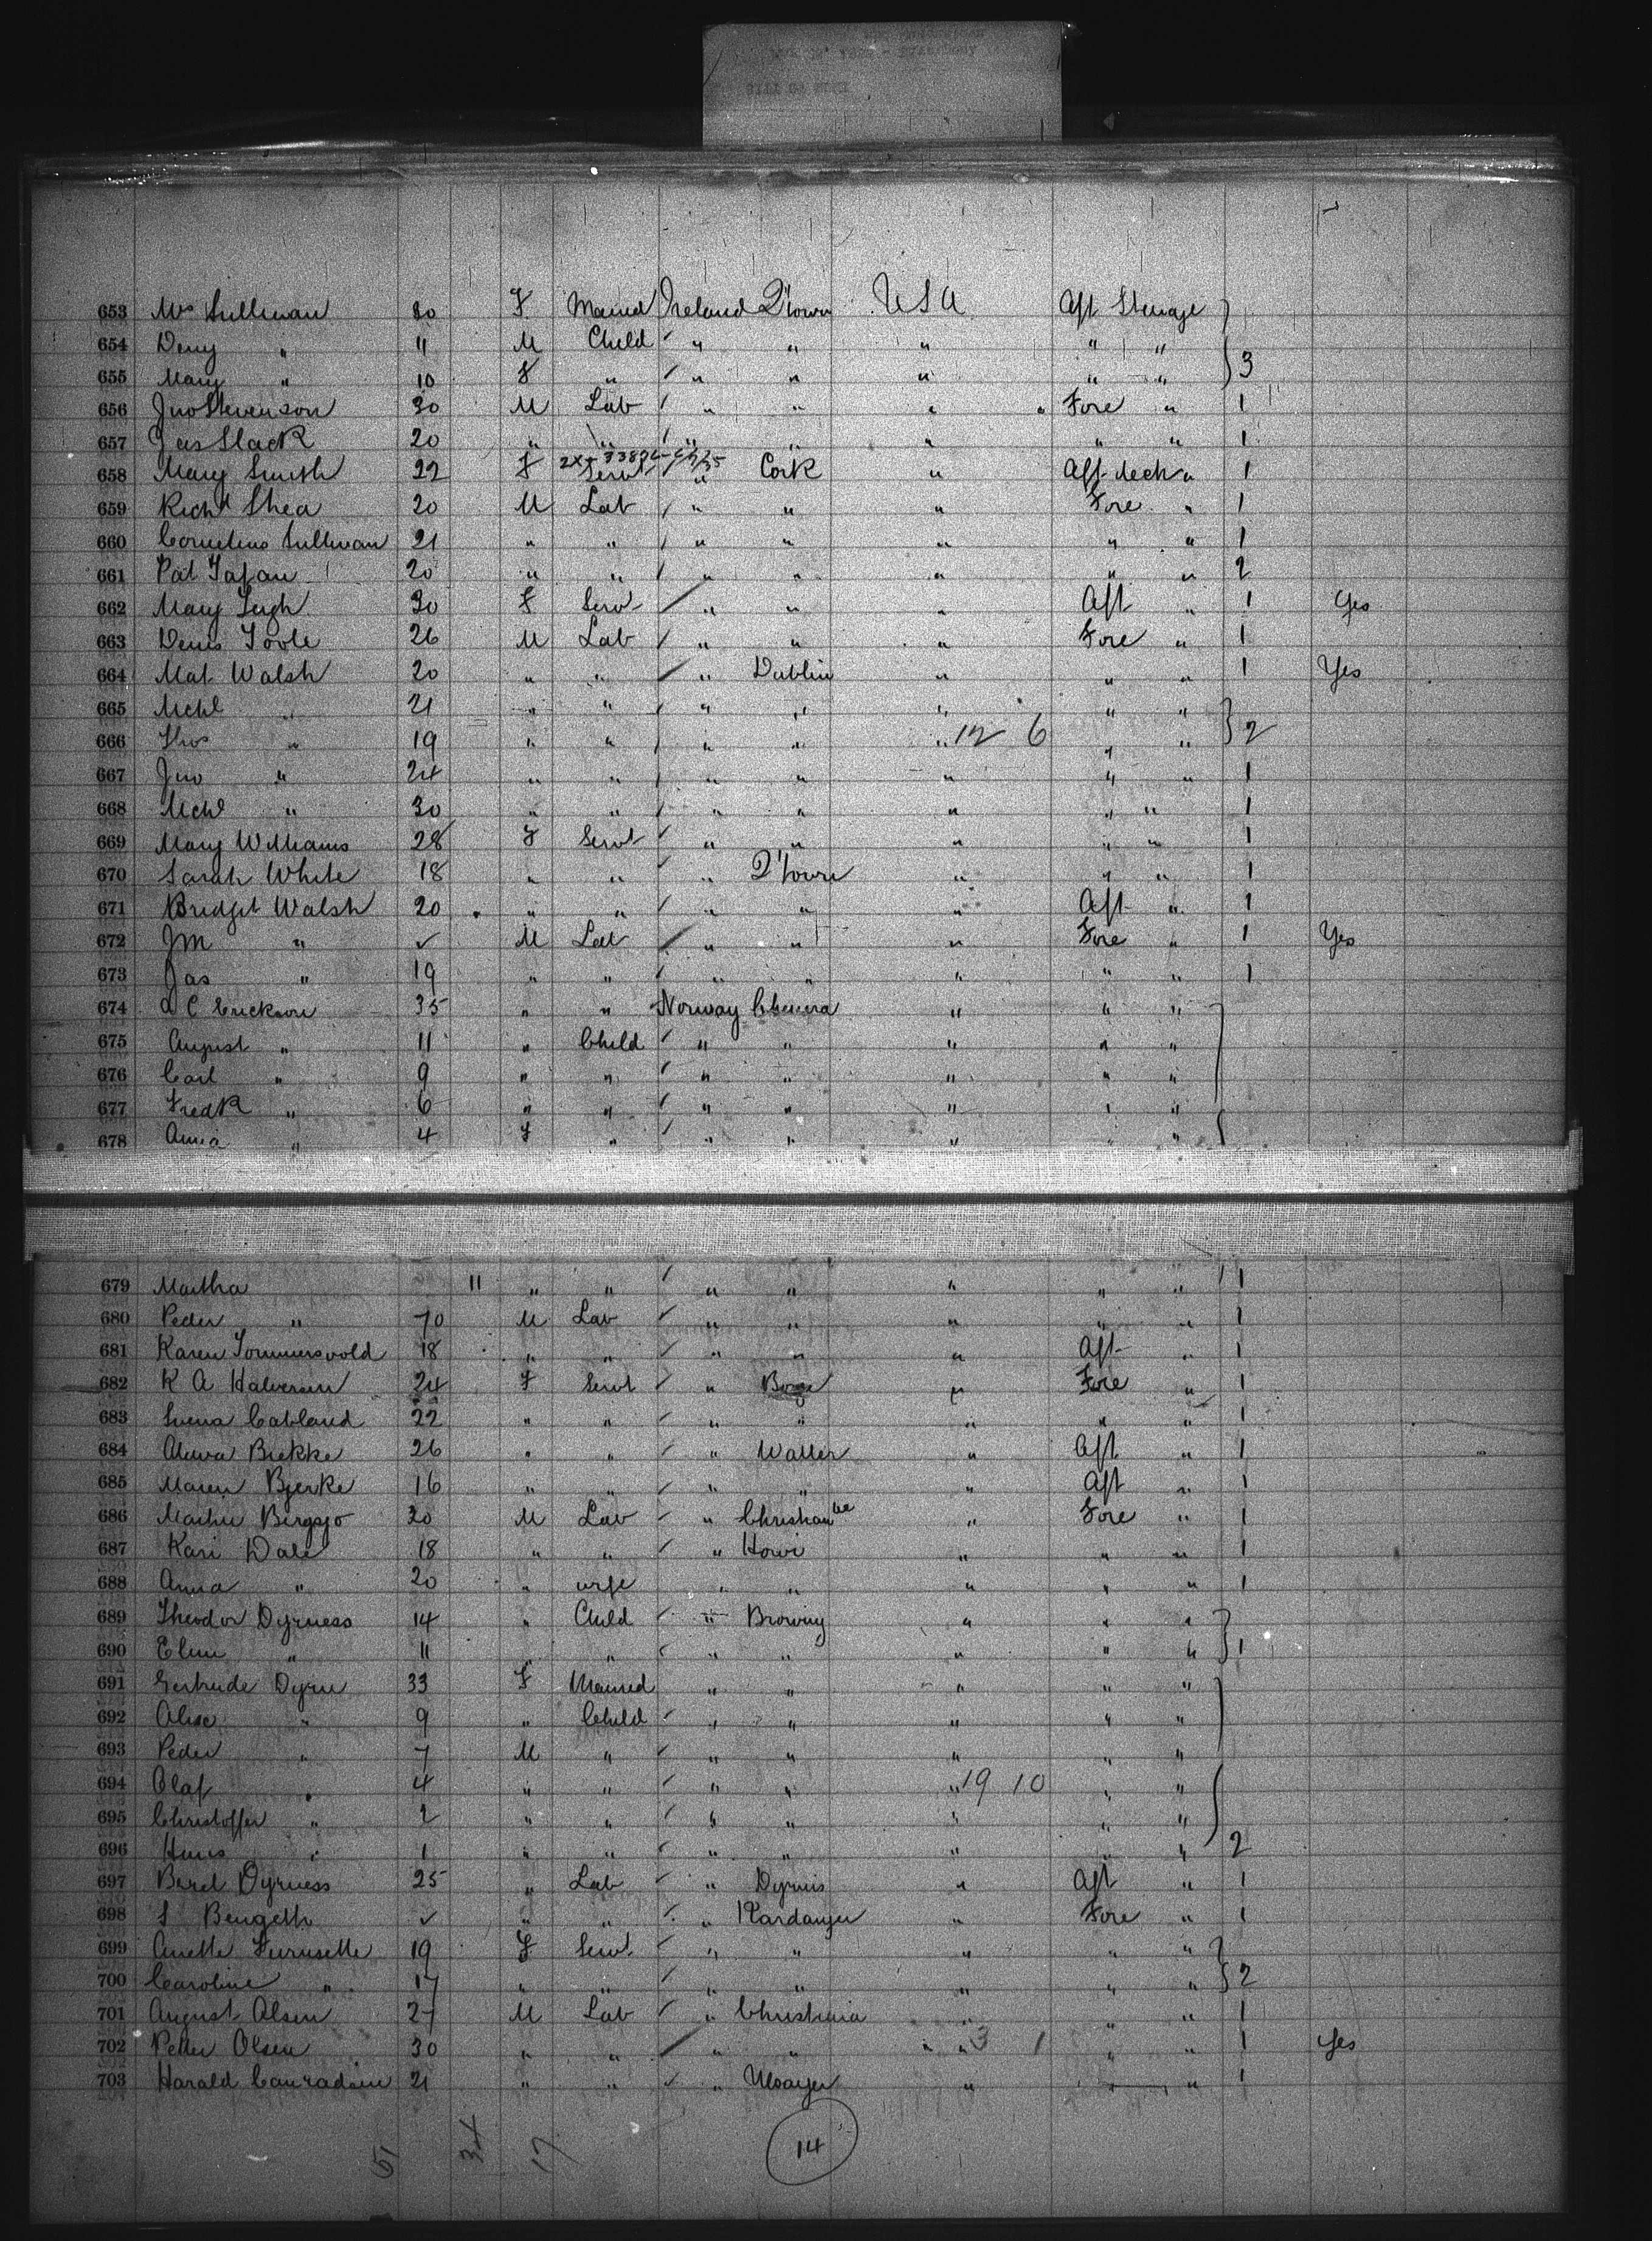 653 Mrs Sullivan 80 F Married Ireland Q'town USA Aft Steerage
654 Deny " 11 M Child " " " " "
655 Mary " 10 F " " " " " " 3
656 Jno Stevenson 30 M Lab " " " Fore " 1
657 Jas Slack 20 " " " " " " " 1
2X-33826-
658 Mary Smith 22 F Servt " Cork " Aft deck " 1
659 Richd Shea 20 M Lab " " " Fore " 1
660 Cornelius Sullivan 21 " " " " " " " 1
661 Pat 20 " " " " " " " 2
662 Mary Leigh 30 F Servt " " " Aft " 1 Yes
663 Denis Toole 26 M Lab " " " Fore " 1
664 Mat Walsh 20 " " " Dublin " " " 1 Yes
665 Mchl " 21 " " " " " " "
666 Thos " 19 " " " " " 12 6 " " 2
667 Jno " 24 " " " " " " " 1
668 Mchl " 30 " " " " " " " 1
669 Mary Williams 28 F Servt " " " " " 1
670 Sarah White 18 " " " Q'town " " " 1
671 Bridget Walsh 20 " " " " " Aft " 1
672 Jm " ✓ M Lab " " " Fore " 1 Yes
673 Jas " 19 " " " " " " " 1
674 C Erickson 35 " " Norway " " "
675 August " 11 " Child " " " " "
676 Carl " 9 " " " " " " "
677 Fredk " 6 " " " " " " "
678 Anna " 4 F " " " " " "
679 Martha 11 " " " " " " " 1
680 Peder " 70 M Lab " " " " " 1
681 Karen Tommersvold 18 " " " " " Aft " 1
682 K A Halversen 24 F Servt " " Fore " 1
683 22 " " " " " " " 1
684 Brekke 26 " " " Waller " Aft " 1
685 Maren Bjerke 16 " " " " " Aft " 1
686 Martin Bergsjo 20 M Lab " " Fore " 1
687 Kari Dale 18 " " " Howi " " " 1
688 Anna " 20 " wife " " " " " 1
689 Theodor Dyrness 14 " Child " Browing " " "
690 " 11 " " " " " " " 1
691 Gertrude Dyrn 33 F Married " " " " "
692 " 9 " Child " " " " "
693 Peder " 7 M " " " " " "
694 Olaf " 4 " " " " " 19 10 " "
695 Christoffer " 2 " " " " " " "
696 Hans " 1 " " " " " " " 2
697 Dyrness 25 " Lab " Dyrnis " Aft " 1
698 S Bengeth ✓ " " " Hardanger " Fore " 1
699 Anette Furusette 19 F Servt " " " " "
700 Caroline " 17 " " " " " " " 2
701 August Olsen 27 M Lab " Christiania " " " 1
702 Petter Olsen 30 " " " " " 3 1 " " 1 Yes
703 Harald 21 " " " " " " 1
51 34 17 14